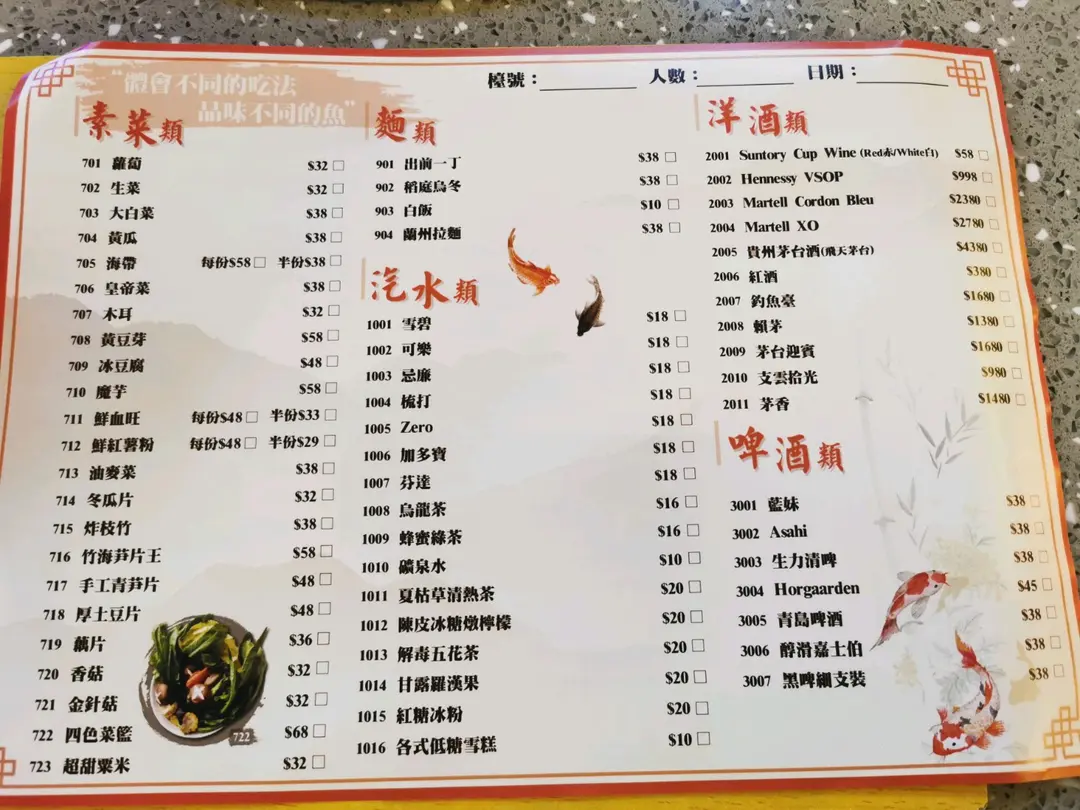 “體會不同的吃法
品味不同的魚”
檯號：
人數：
日期：
素菜類
701 蘿蔔 $32
702 生菜 $32
703 大白菜 $38
704 黃瓜 $38
705 海帶 每份$58 半份$38
706 皇帝菜 $38
707 木耳 $32
708 黃豆芽 $58
709 冰豆腐 $48
710 魔芋 $58
711 鮮血旺 每份$48 半份$33
712 鮮紅薯粉 每份$48 半份$29
713 油麥菜 $38
714 冬瓜片 $32
715 炸枝竹 $38
716 竹海笋片王 $58
717 手工青笋片 $48
718 厚土豆片 $48
719 藕片 $36
720 香菇 $32
721 金針菇 $32
722 四色菜籃 $68
723 超甜粟米 $32
722
麵類
901 出前一丁 $38
902 稻庭烏冬 $38
903 白飯 $10
904 蘭州拉麵 $38
汽水類
1001 雪碧 $18
1002 可樂 $18
1003 忌廉 $18
1004 梳打 $18
1005 Zero $18
1006 加多寶 $18
1007 芬達 $18
1008 烏龍茶 $16
1009 蜂蜜綠茶 $16
1010 礦泉水 $10
1011 夏枯草清熱茶 $20
1012 陳皮冰糖燉檸檬 $20
1013 解毒五花茶 $20
1014 甘露羅漢果 $20
1015 紅糖冰粉 $20
1016 各式低糖雪糕 $10
洋酒類
2001 Suntory Cup Wine (Red赤/White白) $58
2002 Hennessy VSOP $998
2003 Martell Cordon Bleu $2380
2004 Martell XO $2780
2005 貴州茅台酒(飛天茅台) $4380
2006 紅酒 $380
2007 釣魚臺 $1680
2008 賴茅 $1380
2009 茅台迎賓 $1680
2010 支雲拾光 $980
2011 茅香 $1480
啤酒類
3001 藍妹 $38
3002 Asahi $38
3003 生力清啤 $38
3004 Horgaarden $45
3005 青島啤酒 $38
3006 醇滑嘉士伯 $38
3007 黑啤細支裝 $38